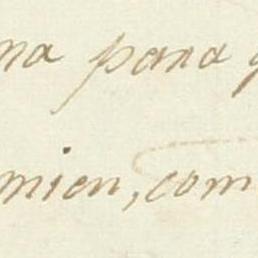 na para q
mien, com